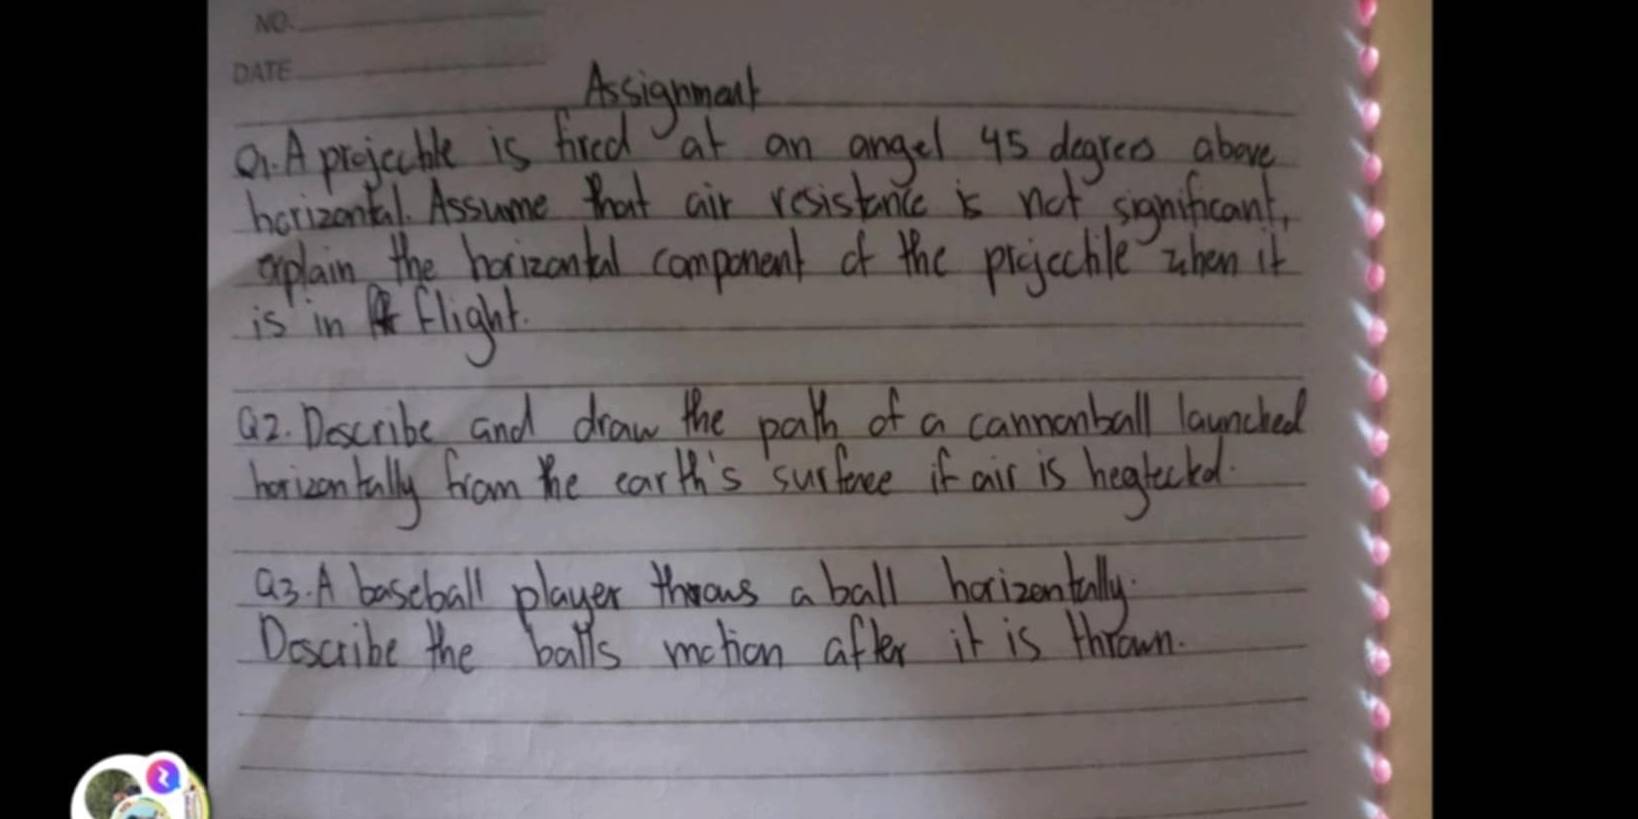 NO.
DATE
Assignment
Q1. A projectile is fired at an angel 45 degrees above
horizontal. Assume that air resistance is not significant,
explain the horizontal component of the projectile when it
is in flight.
Q2. Describe and draw the path of a cannonball launched
horizontally from the earth's surface if air is neglected.
Q3. A baseball player throws a ball horizontally.
Describe the balls motion after it is thrown.